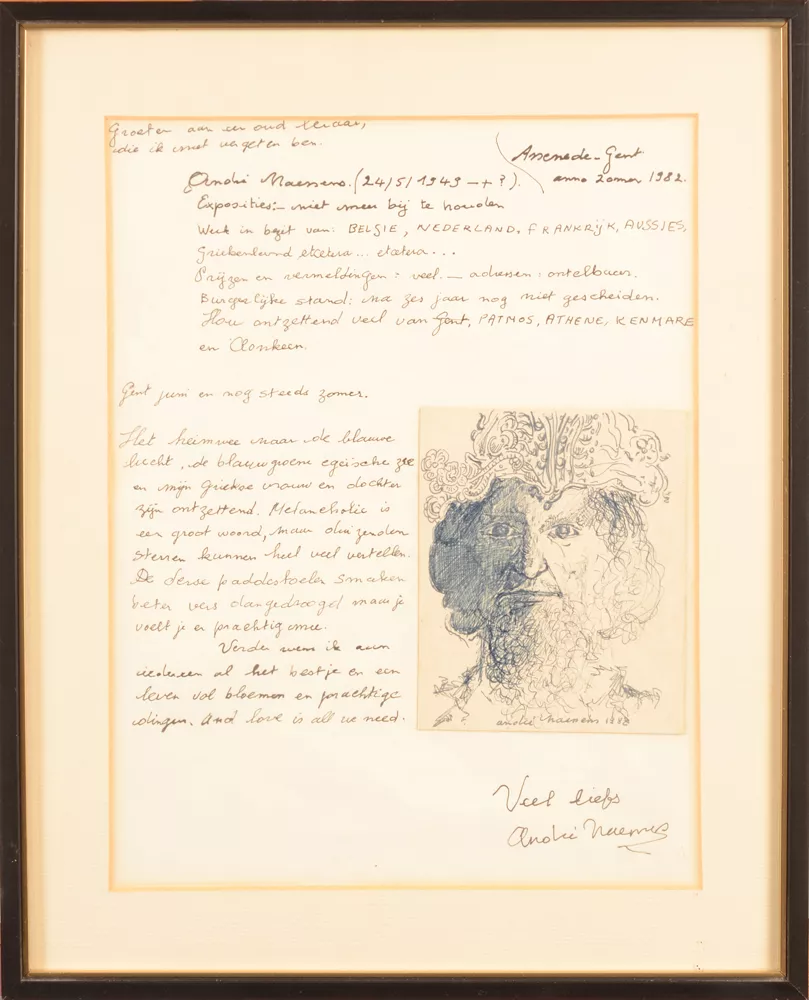 Groeten aan een oud leraar,
die ik niet vergeten ben.
Assenede-Gent
anno zomer 1982.
André Maessens. (24/5/1949 -+ ?).
Exposities:- niet meer bij te houden
Werk in bezit van: BELGIE, NEDERLAND, FRANKRijK, AUSSIES,
Griekenland etcetera... etcetera...
Prijzen en vermeldingen: veel. - adressen: ontelbaar.
Burgerlijke stand: na zes jaar nog niet gescheiden.
Hou ontzettend veel van Gent, PATMOS, ATHENE, KENMARE
en
Gent juni en nog steeds zomer.
Het heimwee naar de blauwe
lucht, de blauwgroene egeïsche zee
en mijn Griekse vrouw en dochter
zijn ontzettend. Melancholie is
een groot woord, maar duizenden
sterren kunnen heel veel vertellen.
De paddestoelen smaken
beter vers dan gedroogd maar je
voelt je er prachtig mee.
Verder wens ik aan
iedereen al het bestje en een
leven vol bloemen en prachtige
dingen. And love is all we need.
andré
Veel liefs
André